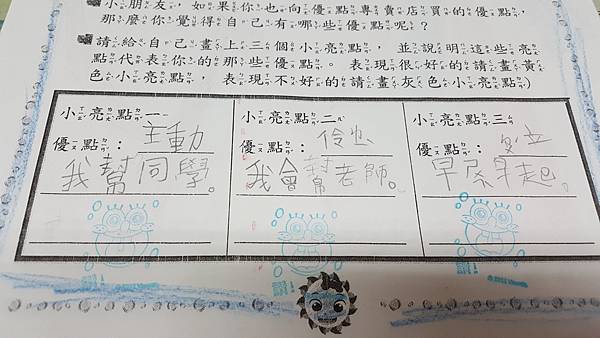 小朋友，如果你也向優點專賣店買的優點，
那麼你覺得自己有哪些優點呢？
請給自己畫上三個小亮點，並說明這些亮
點代表你的那些優點。表現很好的請畫黃
色小亮點，表現不好的請畫灰色小亮點。)
小亮點一
優點：主動
我幫同學。
小亮點二
優點：伶
我會幫老師。
小亮點三
優點：立
早起。